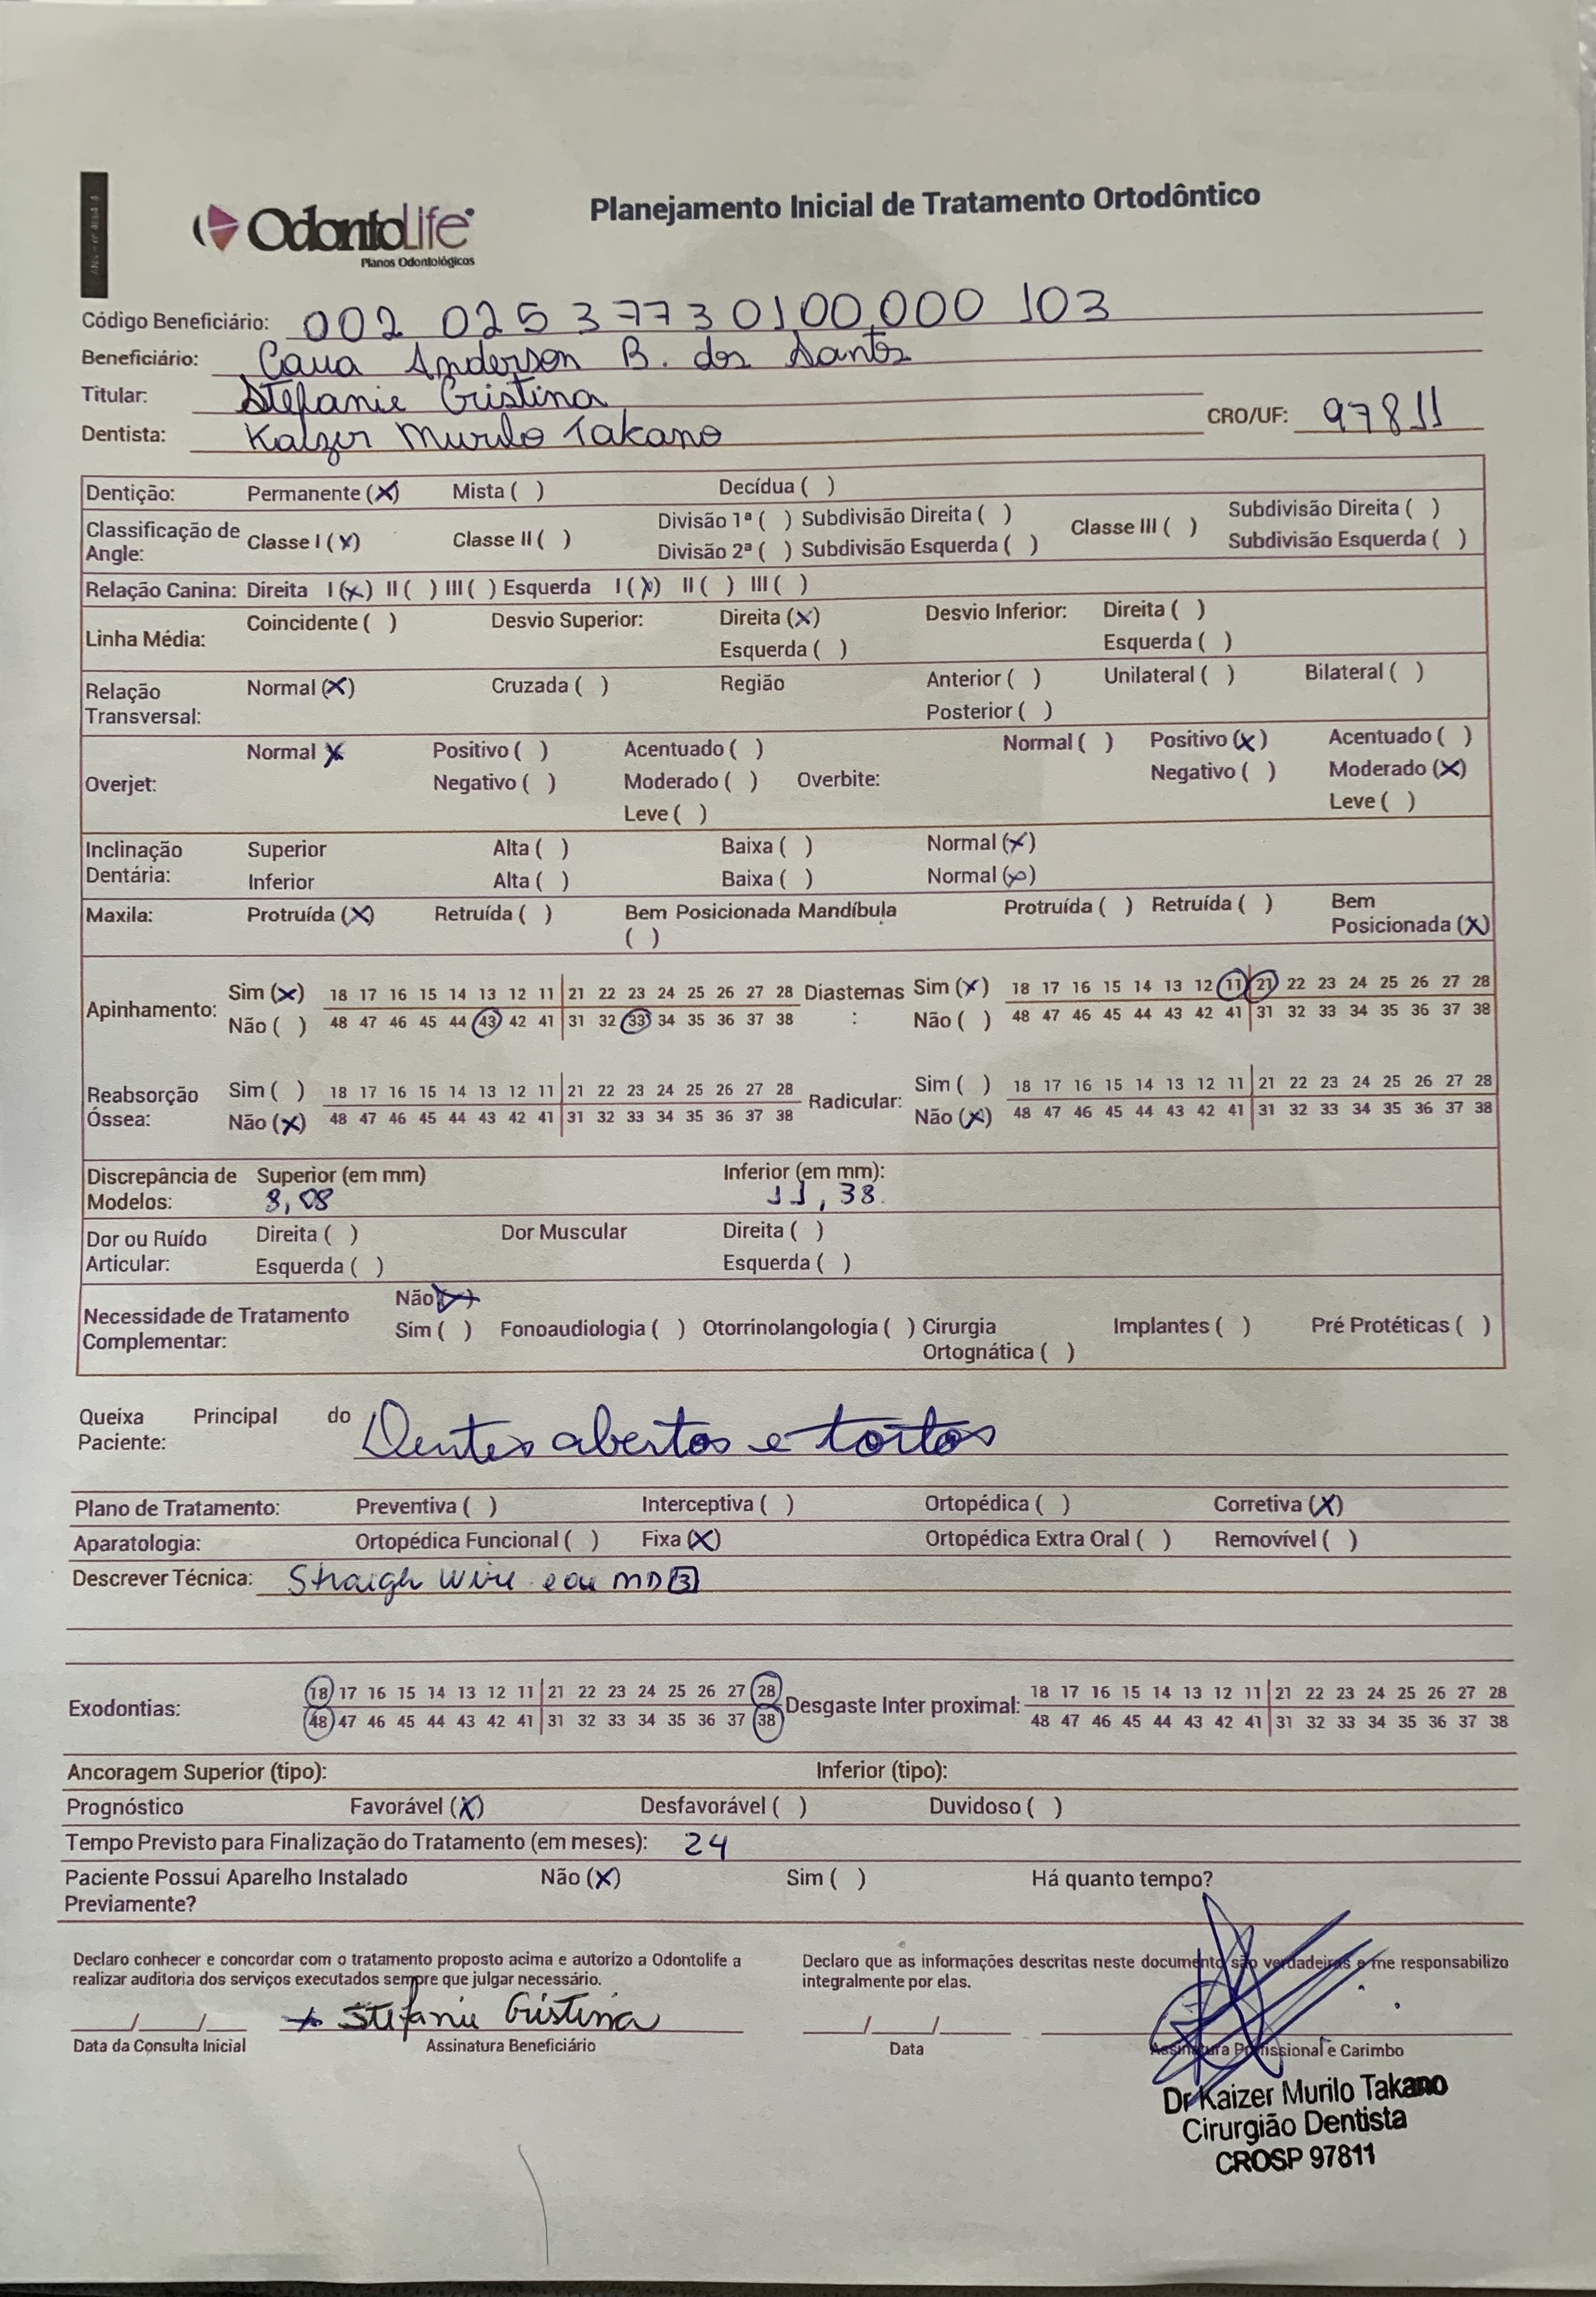 Planejamento Inicial de Tratamento Ortodôntico
OdontoLife
Planos Odontológicos
Código Beneficiário: 002 025 3 77 3 0100,000 103
Beneficiário: Caua Anderson B. dos Santos
Titular: Stefanie Cristina
CRO/UF: 97811
Dentista: Kaizer Murilo Takano
Dentição: Permanente (X) Mista ( ) Decídua ( )
Classificação de Angle: Classe I (X) Classe II ( ) Divisão 1ª ( ) Subdivisão Direita ( ) Classe III ( ) Subdivisão Direita ( )
Divisão 2ª ( ) Subdivisão Esquerda ( ) Subdivisão Esquerda ( )
Relação Canina: Direita I (X) II ( ) III ( ) Esquerda I (X) II ( ) III ( )
Linha Média: Coincidente ( ) Desvio Superior: Direita (X) Desvio Inferior: Direita ( )
Esquerda ( ) Esquerda ( )
Relação Transversal: Normal (X) Cruzada ( ) Região Anterior ( ) Unilateral ( ) Bilateral ( )
Posterior ( )
Overjet: Normal X Positivo ( ) Acentuado ( ) Overbite: Normal ( ) Positivo (X) Acentuado ( )
Negativo ( ) Moderado ( ) Negativo ( ) Moderado (X)
Leve ( ) Leve ( )
Inclinação Dentária: Superior Alta ( ) Baixa ( ) Normal (X)
Inferior Alta ( ) Baixa ( ) Normal (X)
Maxila: Protruída (X) Retruída ( ) Bem Posicionada ( ) Mandíbula Protruída ( ) Retruída ( ) Bem Posicionada (X)
Apinhamento: Sim (X) 18 17 16 15 14 13 12 11 21 22 23 24 25 26 27 28 Diastemas : Sim (X) 18 17 16 15 14 13 12 11 21 22 23 24 25 26 27 28
Não ( ) 48 47 46 45 44 43 42 41 31 32 33 34 35 36 37 38 Não ( ) 48 47 46 45 44 43 42 41 31 32 33 34 35 36 37 38
Reabsorção Óssea: Sim ( ) 18 17 16 15 14 13 12 11 21 22 23 24 25 26 27 28 Radicular: Sim ( ) 18 17 16 15 14 13 12 11 21 22 23 24 25 26 27 28
Não (X) 48 47 46 45 44 43 42 41 31 32 33 34 35 36 37 38 Não (X) 48 47 46 45 44 43 42 41 31 32 33 34 35 36 37 38
Discrepância de Modelos: Superior (em mm) Inferior (em mm):
8,08 11,38
Dor ou Ruído Articular: Direita ( ) Dor Muscular Direita ( )
Esquerda ( ) Esquerda ( )
Necessidade de Tratamento Complementar: Não (X)
Sim ( ) Fonoaudiologia ( ) Otorrinolangologia ( ) Cirurgia Ortognática ( ) Implantes ( ) Pré Protéticas ( )
Queixa Principal do Paciente: Dentes abertos e tortos
Plano de Tratamento: Preventiva ( ) Interceptiva ( ) Ortopédica ( ) Corretiva (X)
Aparatologia: Ortopédica Funcional ( ) Fixa (X) Ortopédica Extra Oral ( ) Removível ( )
Descrever Técnica: Straigh wire e ou MD3
Exodontias: 18 17 16 15 14 13 12 11 21 22 23 24 25 26 27 28 Desgaste Inter proximal: 18 17 16 15 14 13 12 11 21 22 23 24 25 26 27 28
48 47 46 45 44 43 42 41 31 32 33 34 35 36 37 38 48 47 46 45 44 43 42 41 31 32 33 34 35 36 37 38
Ancoragem Superior (tipo): Inferior (tipo):
Prognóstico Favorável (X) Desfavorável ( ) Duvidoso ( )
Tempo Previsto para Finalização do Tratamento (em meses): 24
Paciente Possui Aparelho Instalado Previamente? Não (X) Sim ( ) Há quanto tempo?
Declaro conhecer e concordar com o tratamento proposto acima e autorizo a Odontolife a
realizar auditoria dos serviços executados sempre que julgar necessário.
Declaro que as informações descritas neste documento são verdadeiras e me responsabilizo
integralmente por elas.
Stefanie Cristina
Data da Consulta Inicial Assinatura Beneficiário Data Assinatura Profissional e Carimbo
Dr Kaizer Murilo Takano
Cirurgião Dentista
CROSP 97811